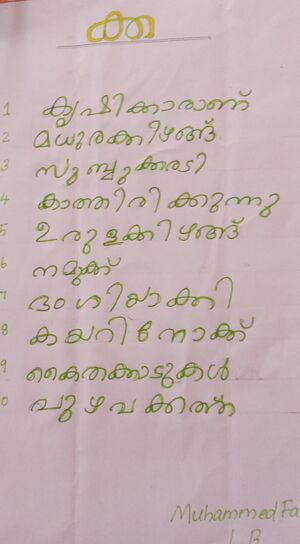 ക്ക
1 കൃഷിക്കാരാണ്
2 മധുരക്കിഴങ്ങ്
3 സുമ്പുക്കരടി
4 കാത്തിരിക്കുന്നു
5 ഉരുളക്കിഴങ്ങ്
6 നമുക്ക്
7 ഭംഗിയാക്കി
8 കയറിനോക്ക്
9 കൈതക്കാടുകൾ
0 പുഴവക്കത്ത്
Muhammed Fa
1 B